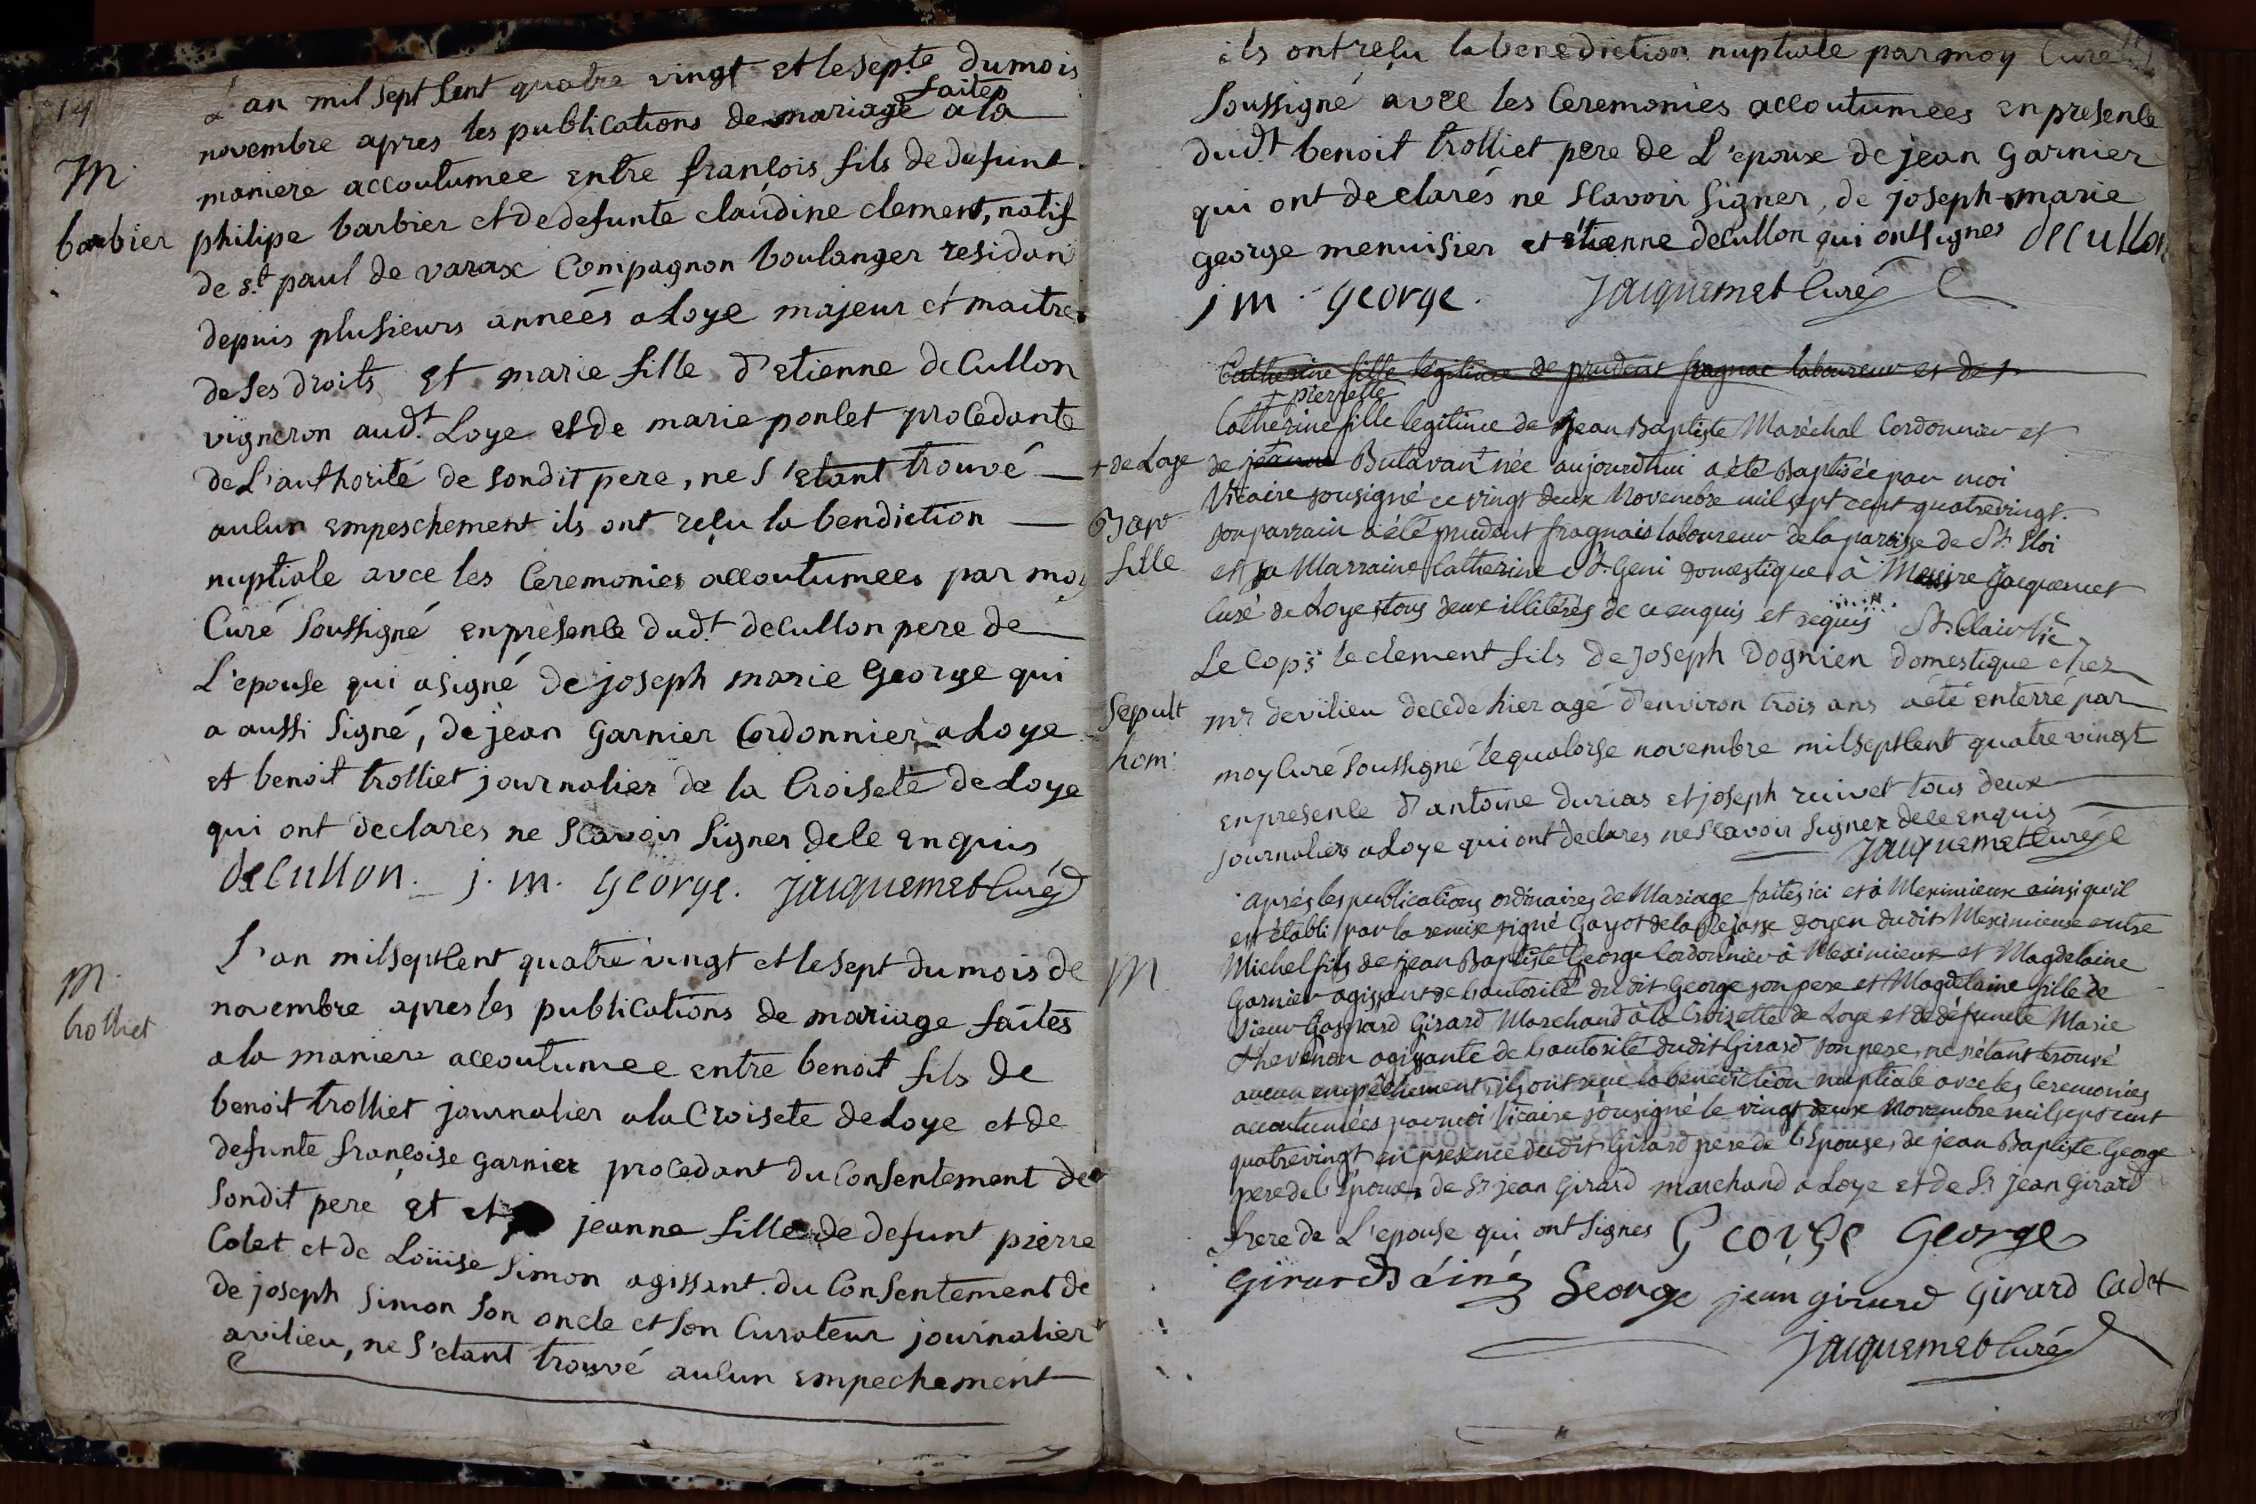 14
L'an mil sept cent quatre vingt et le septe du mois
novembre apres les publications de mariage faites a la
M.
maniere accoutumee entre françois fils de defunt
barbier
philipe barbier et de defunte claudine clement, natif
de st paul de varax compagnon boulanger residant
depuis plusieurs années a Loye majeur et maitre
de ses droits et marie fille d'etienne decullon
vigneron aud.t Loye et de marie ponlet procedante
de L'authorité de sondit pere, ne s'etant trouvé
aucun empeschement ils ont reçu la bendiction
nuptiale avce les Ceremonies accoutumees par moy
Curé soussigné en presence dud.t decullon pere de
L'epouse qui a signé de joseph marie George qui
a aussi signé, de jean Garnier Cordonnier a Loye
et benoit trolliet journalier de la Croisete de Loye
qui ont declares ne scavoir signer de ce enquis
decullon. j. m. George. Jacquemet Curé
M.
trolliet
L'an mil sept cent quatre vingt et le sept du mois de
novembre apres les publications de mariage faites
a la maniere accoutumee entre benoit fils de
benoit trolliet journalier a la Croisete de Loye et de
defunte françoise Garnier procedant du Consentement de
sondit pere et et jeanne fille de defunt pierre
Colet et de Loüise simon agissant du Consentement de
de joseph simon son oncle et son Curateur journalier
a vilieu, ne s'etant trouvé aucun empechement
ils ont reçu la benediction nuptiale par moy Curé
soussigné avce les Ceremonies accoutumees en presence
dud.t benoit trolliet pere de L'epoux de jean Garnier
qui ont declarés ne scavoir signer, de joseph-marie
george menuisier et etienne decullon qui ont signes decullon
j m. George. Jacquemet Curé
Catherine fille legitime de prudent fragnac laboureur et de +
+ pierrette
Catherine fille legitime de Jean Baptiste Maréchal Cordonnier et
+ de Loye
de jeanne Butavant née aujourd'hui a été Baptisée par moi
Vicaire sousigné ce vingt deux Novembre mil sept cent quatrevingt.
Bap
fille
son parrain a été prudent fragnais laboureur de la paroisse de St. Eloi
et sa Marraine Catherine St. Geni domestique à Messire Jacquemet
Curé de Loye, tous deux illiterés de ce enquis et requis St. Clair Vic
Sepult
hom.
Le Cops le clement fils de Joseph Dognien domestique chez
mr. de vilieu decede hier agé d'environ trois ans a été enterré par
moy Curé soussigné le quatorse novembre mil sept cent quatre vingt
en presence d'antoine durias et joseph ruivet tous deux
journaliers a Loye qui ont declares ne scavoir signer de ce enquis
Jacquemet Curé
M
Aprés les publications ordinaires de Mariage faites ici et à Meximieux ainsi qu'il
est établi par la remise signé Gayot de la doyen dudit Meximieux entre
Michel fils de Jean Baptiste George Cordonnier à Meximieux et Magdelaine
Garnier agissant de l'autorité dudit George son pere et Magdelaine fille de
Sieur Gaspard Girard Marchand à la Croizette de Loye et de défuncte Marie
Thevenon agissante de l'autorité dudit Girard son pere, ne s'étant trouvé
aucun empêchement, ils ont reçu la benediction nuptiale avec les Ceremonies
accoutumées par moi Vicaire sousigné le vingt deux Novembre mil sept cent
quatrevingt en presence dudit Girard pere de l'Epouse, de jean Baptiste George
pere de l'Epoux, de Sr jean Girard marchand a Loye et de Sr jean Girard
frere de L'epouse qui ont signes George George
Girard ainé George jean girard Girard Cadet
Jacquemet Curé